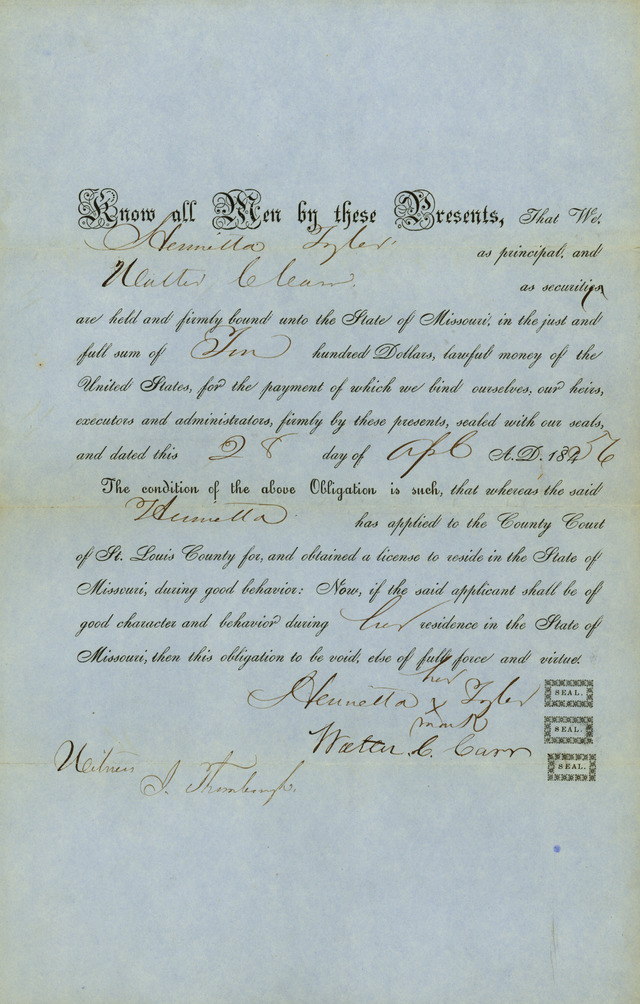 Know all Men by these Presents, That We,
Henrietta Tyler
as principal, and
Walter C Carr
as securities
are held and firmly bound unto the State of Missouri, in the just and
full sum of Ten hundred Dollars, lawful money of the
United States, for the payment of which we bind ourselves, our heirs,
executors and administrators, firmly by these presents, sealed with our seals,
and dated this 28 day of Apl A.D. 1856
The condition of the above Obligation is such, that whereas the said
Henrietta has applied to the County Court
of St. Louis County for, and obtained a license to reside in the State of
Missouri, during good behavior: Now, if the said applicant shall be of
good character and behavior during her residence in the State of
Missouri, then this obligation to be void, else of full force and virtue.
her
Henrietta X Tyler SEAL.
mark
Walter C. Carr SEAL.
Witness SEAL.